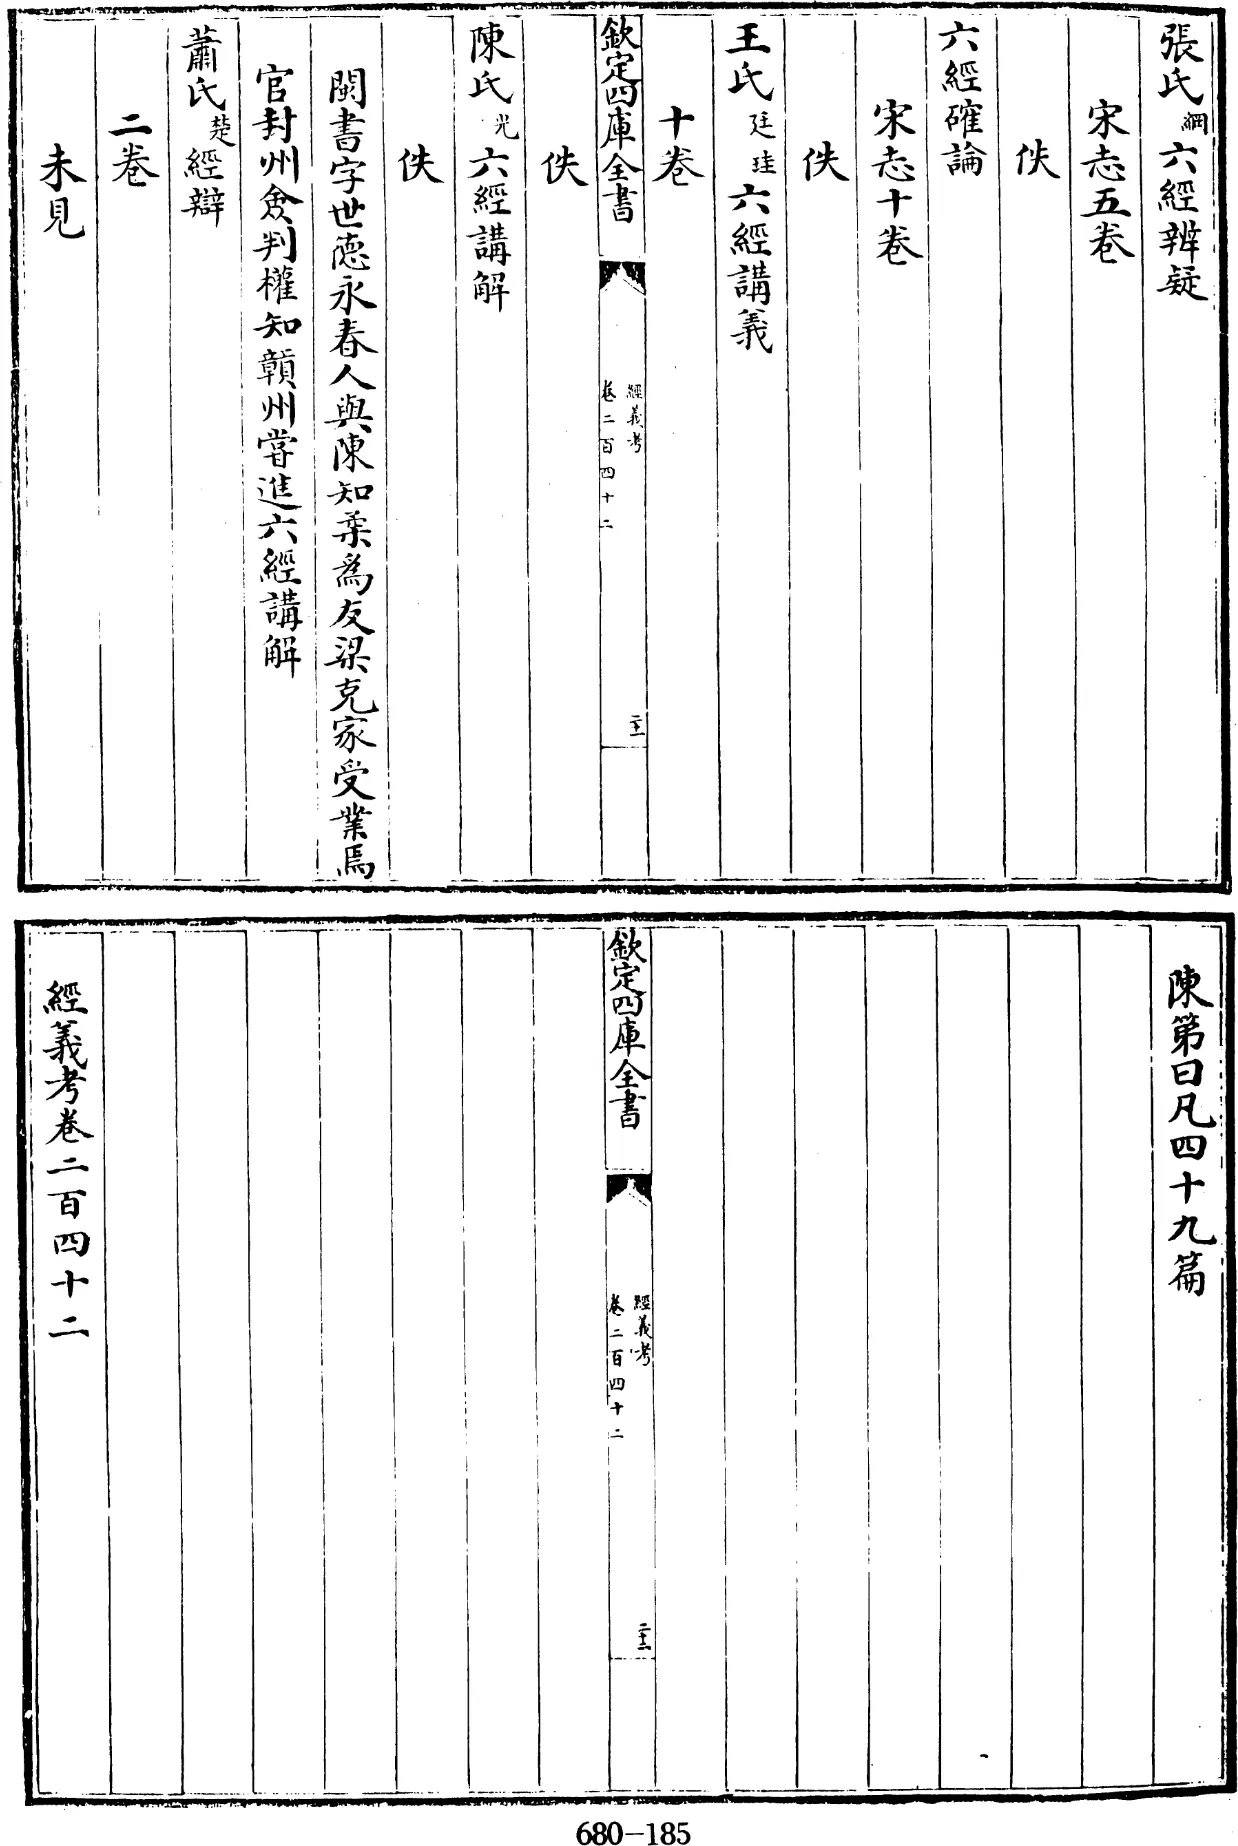 張氏綱六經辨疑
宋志五卷
佚
六經確論
宋志十卷
佚
王氏廷珪六經講義
十卷
欽定四庫全書
經義考
卷二百四十二
二十一
佚
陳氏光六經講解
佚
閩書字世德永春人與陳知柔為友梁克家受業焉
官封州僉判權知贛州嘗進六經講解
蕭氏楚經辯
二卷
未見
陳第曰凡四十九篇
欽定四庫全書
經義考
卷二百四十二
二十二
經義考卷二百四十二
680-185